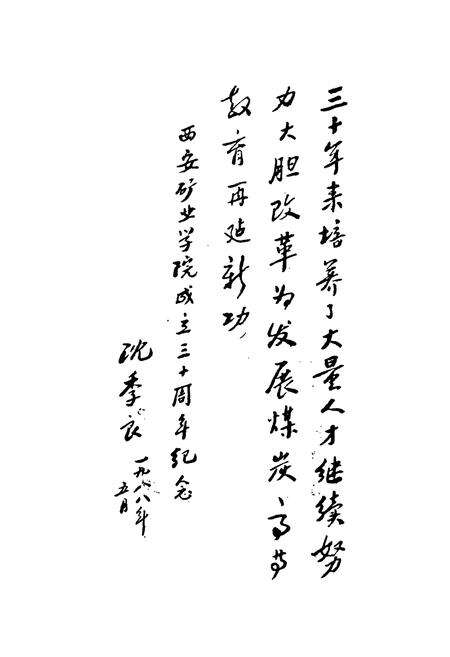 三十年来培养了大量人才继续努
力大胆改革为发展煤炭高等
教育再建新功
西安矿业学院成立三十周年纪念
沈季良
一九八八年
五月